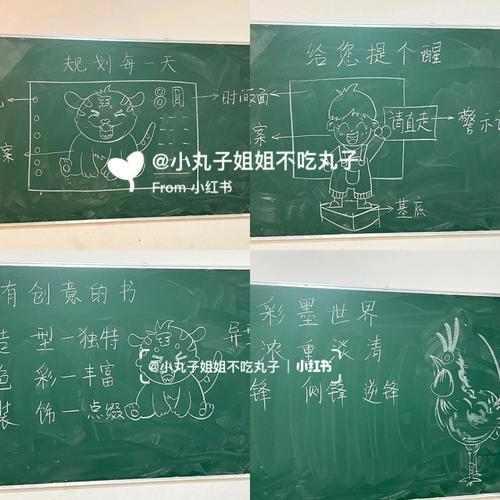 规划每一天
8月
时间页面
案
@小丸子姐姐不吃丸子
From 小红书
给您提个醒
请直走
案
警示
基底
有创意的书
造 型—独特
色 彩—丰富
装 饰—点缀
异
@小丸子姐姐不吃丸子 | 小红书
彩墨世界
浓 重 淡 清
锋 侧锋 逆锋